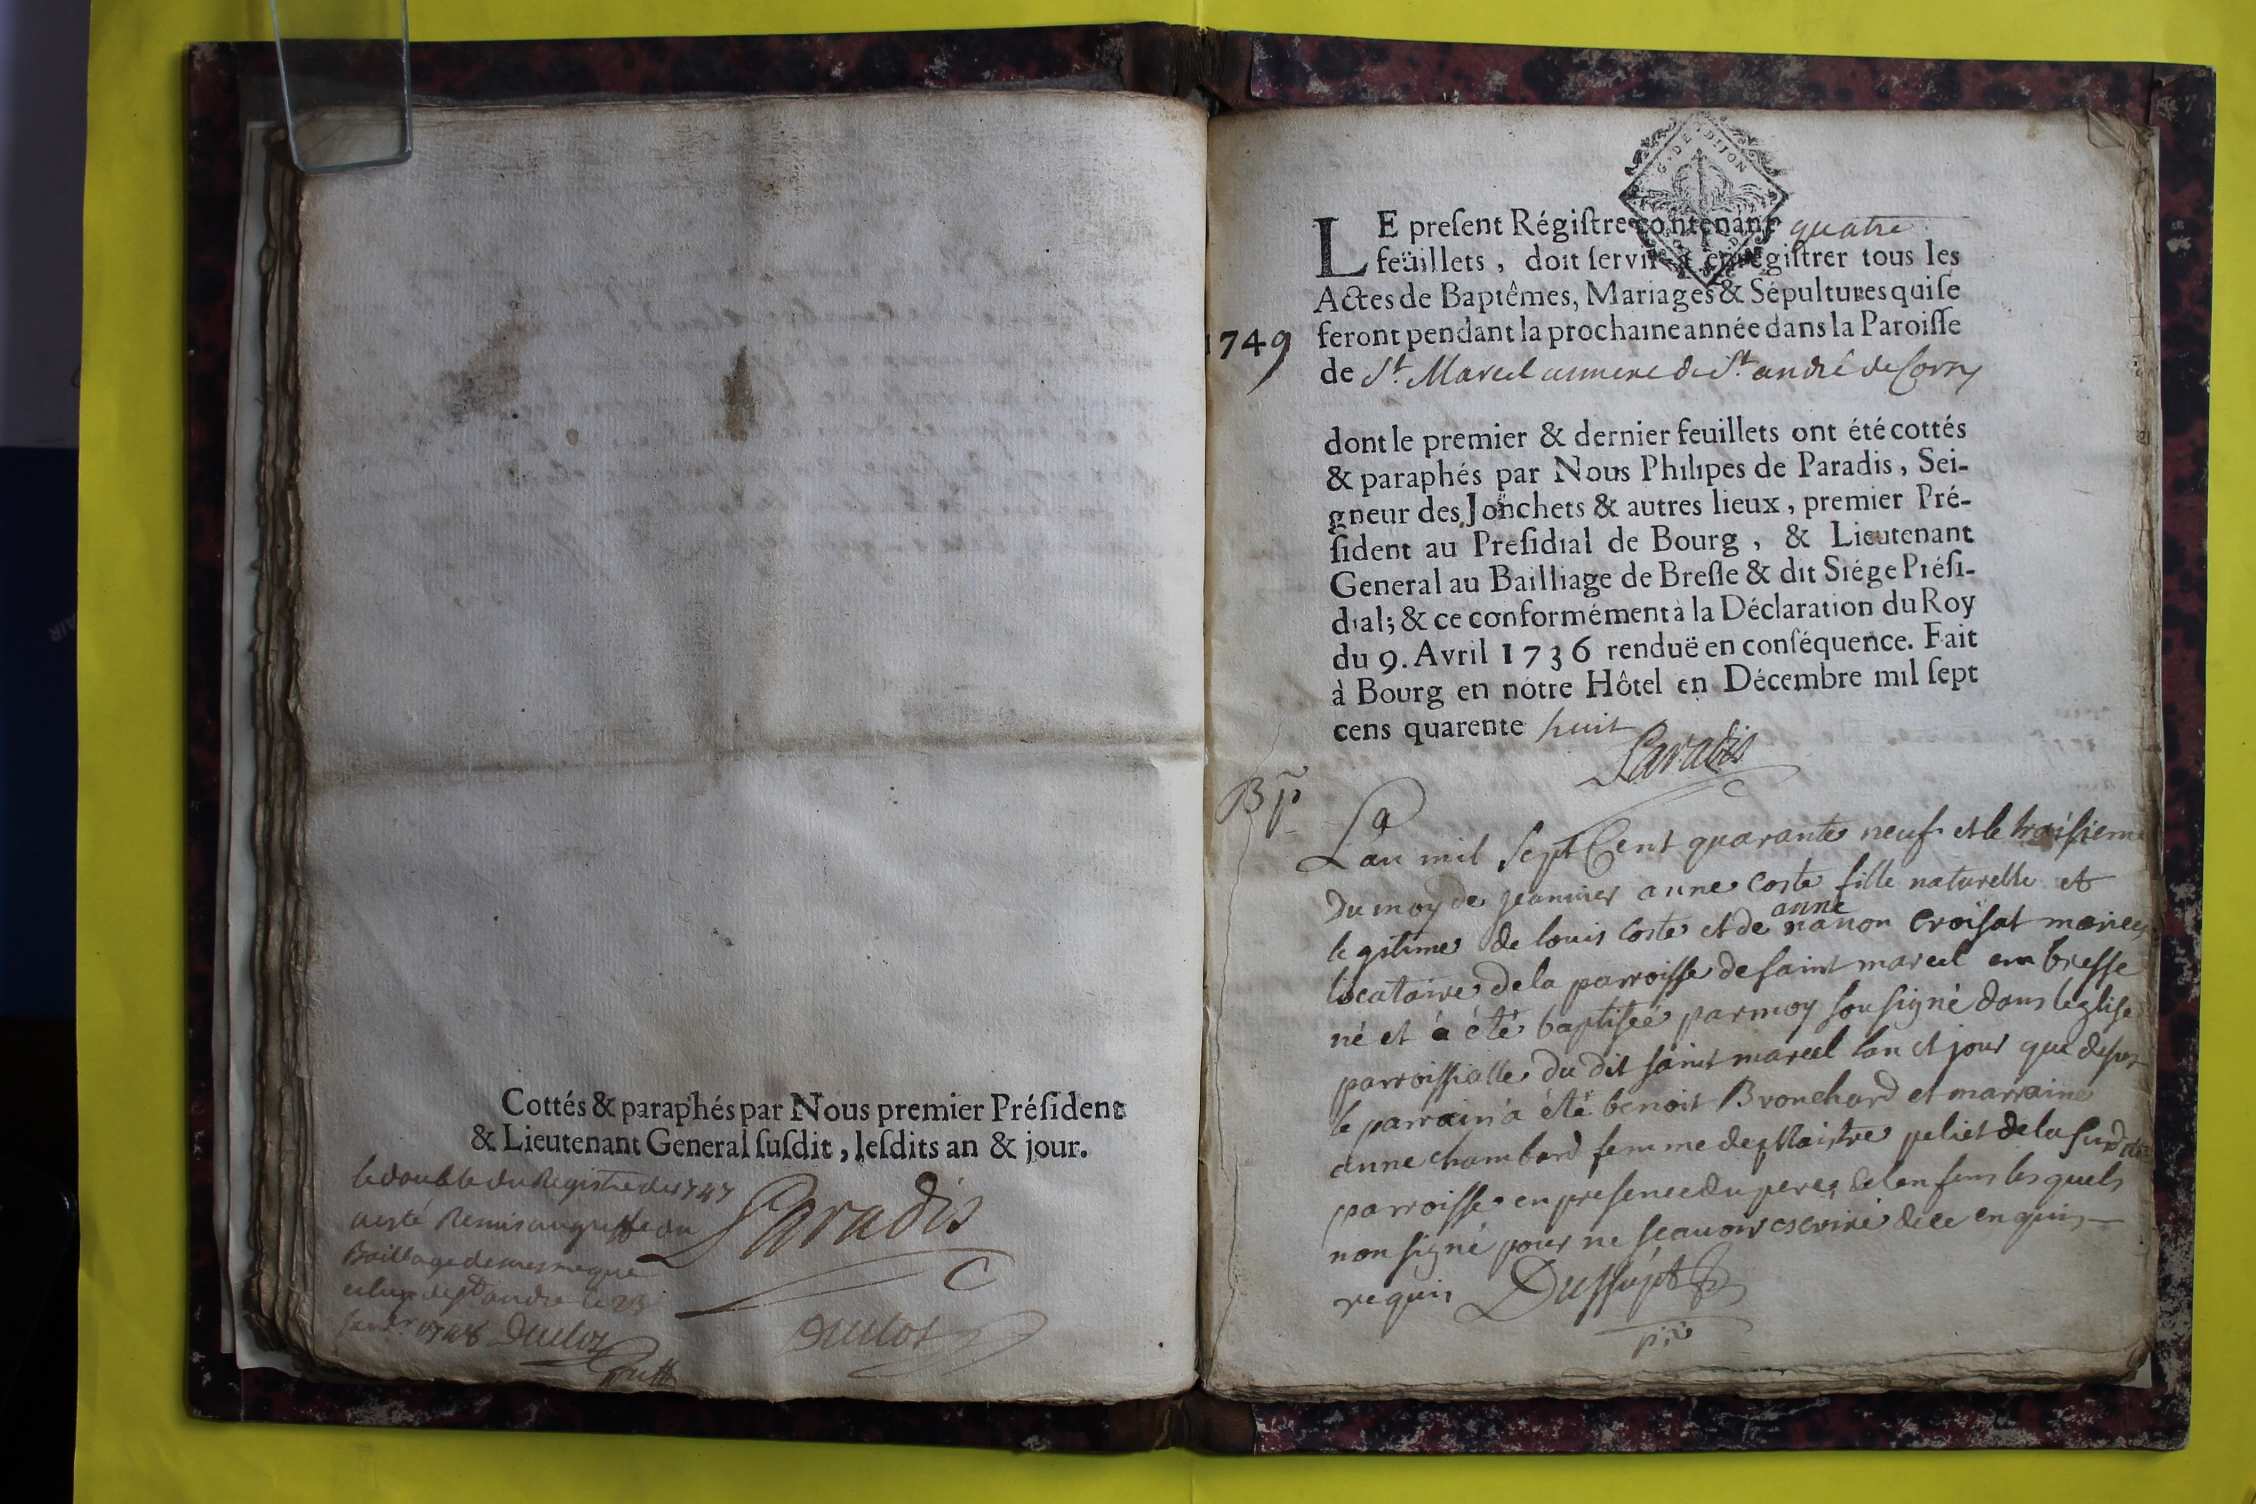 Cottés & paraphés par Nous premier Préſident
& Lieutenant General ſuſdit, leſdits an & jour.
le double du Registre de 1747
a esté Remis au greffe du
Bailliage de mesme que
celuy de St andre le 23
janr 1748 Duclos
Paradis
Duclos
G. DE DIJON
LE preſent Régiſtre contenant quatre
feüillets, doit ſervir à enregiſtrer tous les
Actes de Baptêmes, Mariages & Sépultures qui ſe
1749 feront pendant la prochaine année dans la Paroiſſe
de St. Marcel annexe de St. andré de Corcy
dont le premier & dernier feuillets ont été cottés
& paraphés par Nous Philipes de Paradis, Sei-
gneur des Jonchets & autres lieux, premier Pré-
ſident au Preſidial de Bourg, & Lieutenant
General au Bailliage de Breſſe & dit Siége Préſi-
dial; & ce conformément à la Déclaration du Roy
du 9. Avril 1736 renduë en conſéquence. Fait
à Bourg en nôtre Hôtel en Décembre mil ſept
cens quarente huit
Paradis
Bp
Lan mil sept Cent quarante neuf et le traisieme
Du moy de jeanvier anne coste fille naturelle et
anne
legitime de louis coste et de nanon croisat mariez
locataire de la parroisse de saint marcel em bresse
né et à été baptiseé par moy sousigné dans leglise
parroissialle du dit saint marcel lan et jour que desus
le parrain à été benoit Bronchard et marraine
anne chambard femme de Maistre peliet de la susd
parroisse en presence du pere, et en fens les quels
non signé pour ne scauoir escrire de ce enquis
requis Dussupt